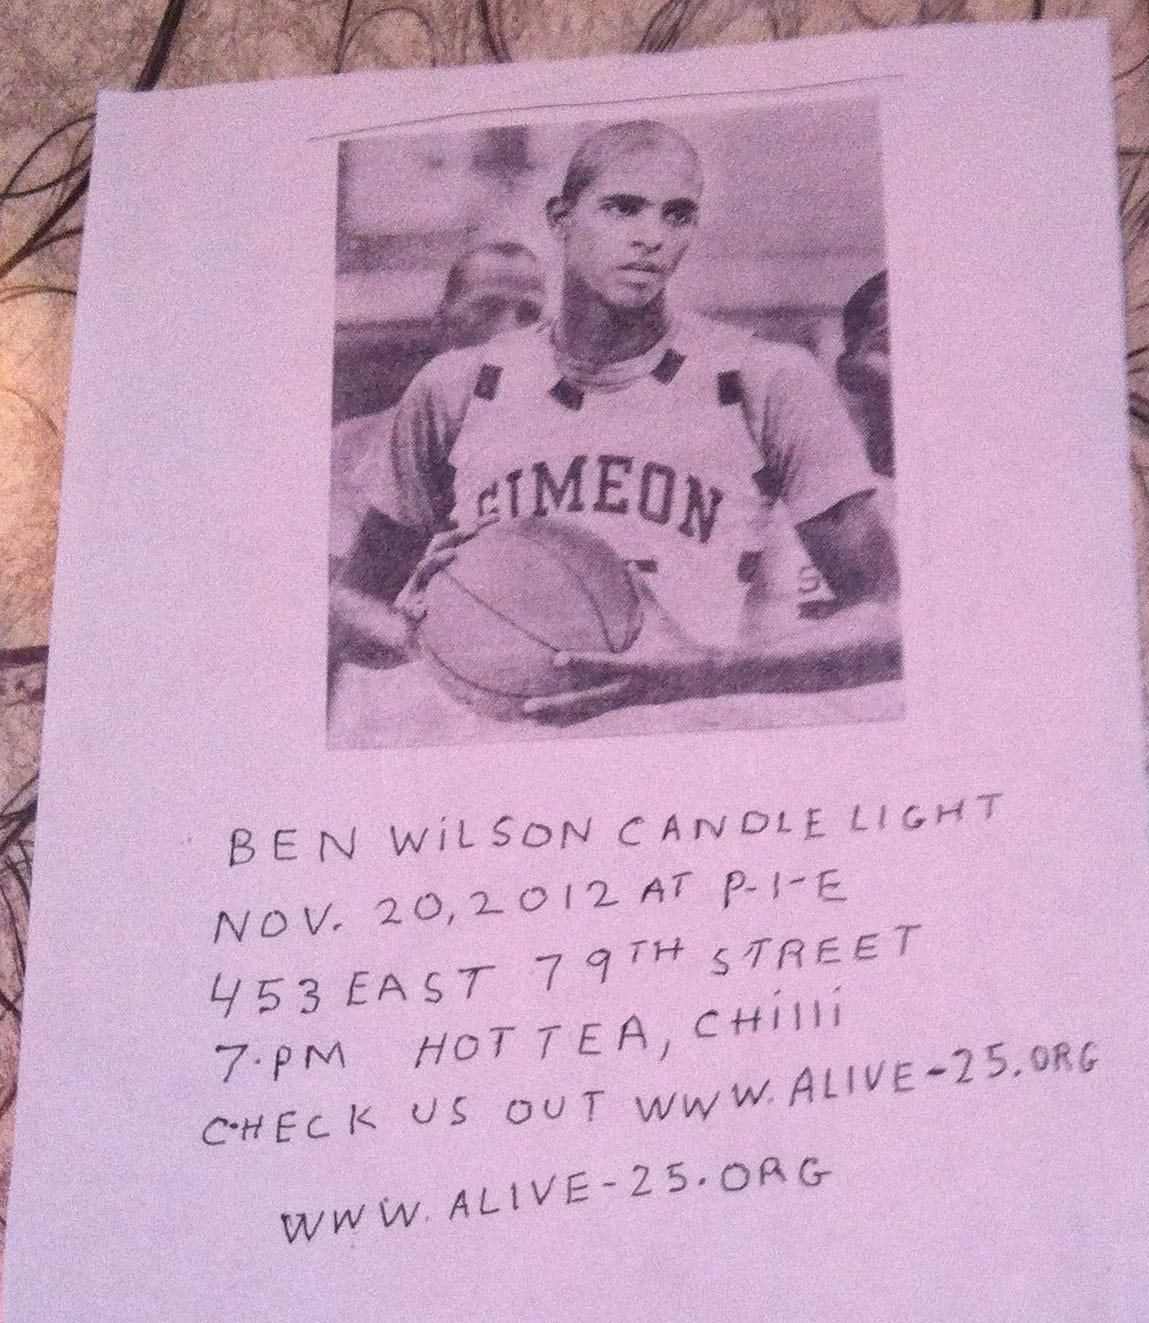 SIMEON
BEN WiLSON CANDLE LIGHT
NOV. 20, 2012 AT P-I-E
453 EAST 79TH STREET
7·PM HOT TEA, CHillI
CHECK US OUT WWW. ALIVE-25.ORG
WWW. ALIVE-25.ORG